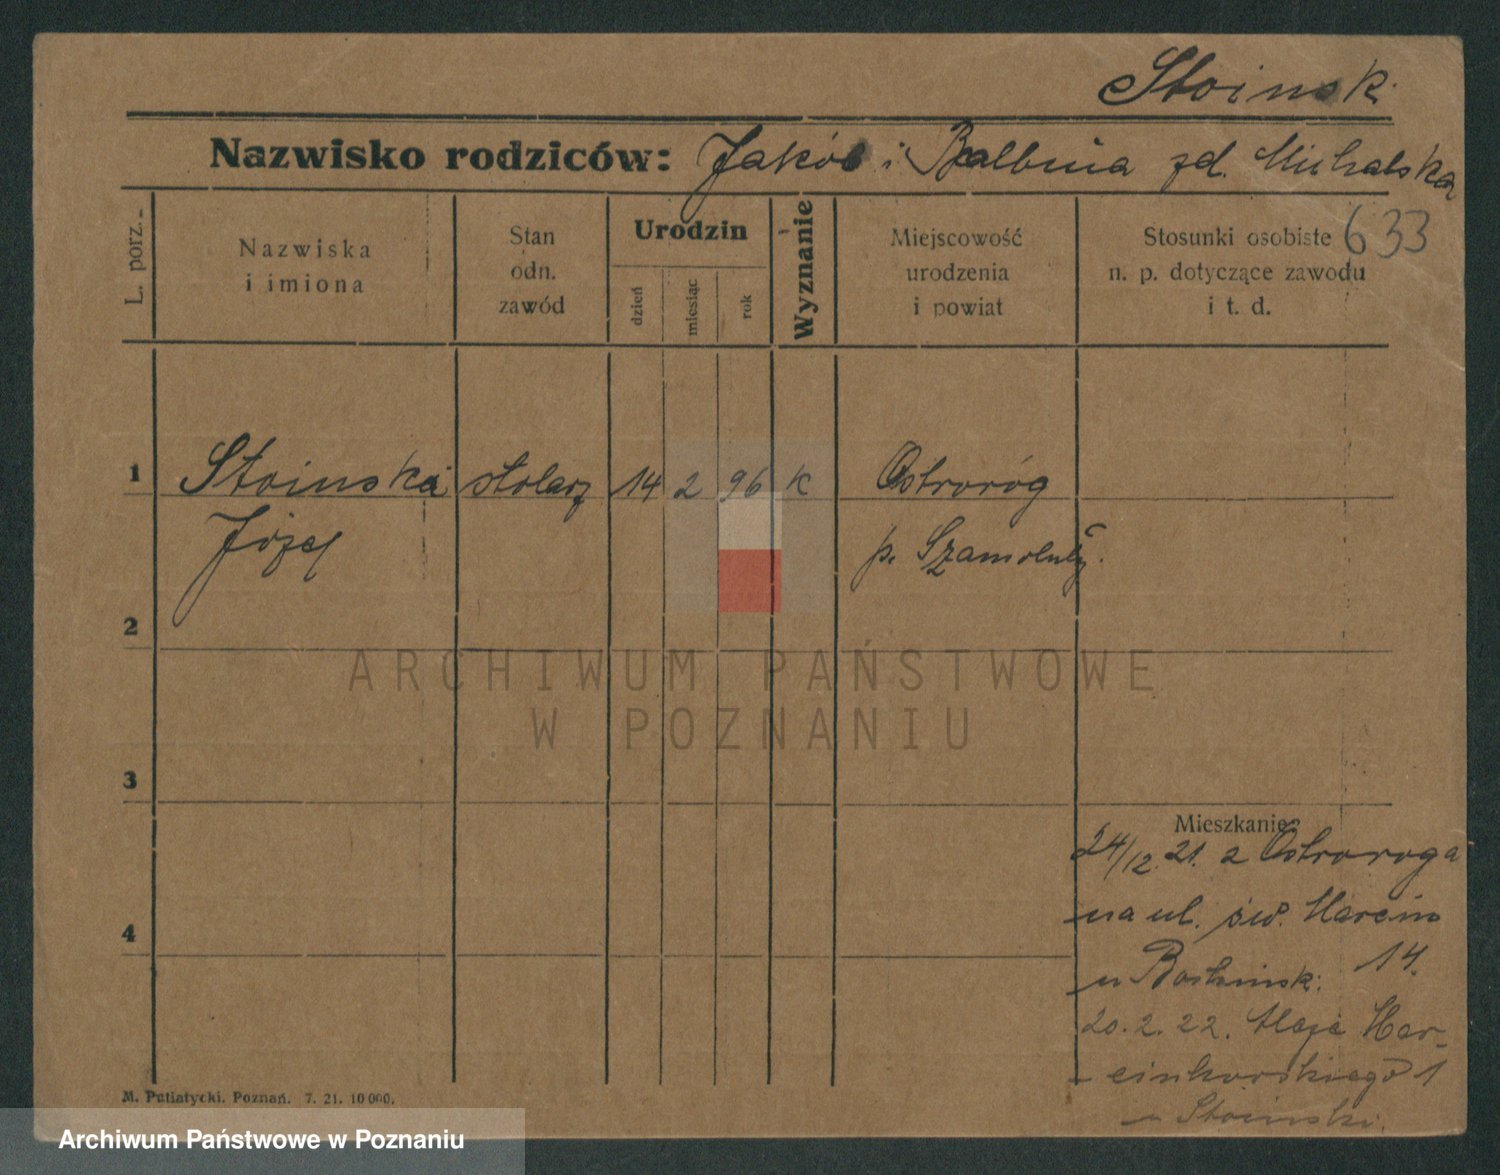 Stoinski
Nazwisko rodziców: Jakób i Balbina zd. Michalska
633
L. porz.
Nazwiska
i imiona
Stan
odn.
zawód
Urodzin
dzień
miesiąc
rok
Wyznanie
Miejscowość
urodzenia
i powiat
Stosunki osobiste
n. p. dotyczące zawodu
i t. d.
1 Stoinski stolarz 14 2 96 K Ostroróg
Józef p. Szamotuły.
2
3
4
Mieszkanie
24/12.21. z Ostroroga
na ul. św. Marcin
14.
u
20.2.22. Aleja Mar-
cinkowskiego 1
u Stoinski.
M. Putiatycki. Poznań. 7. 21. 10000.
ARCHIWUM PAŃSTWOWE
W POZNANIU
Archiwum Państwowe w Poznaniu